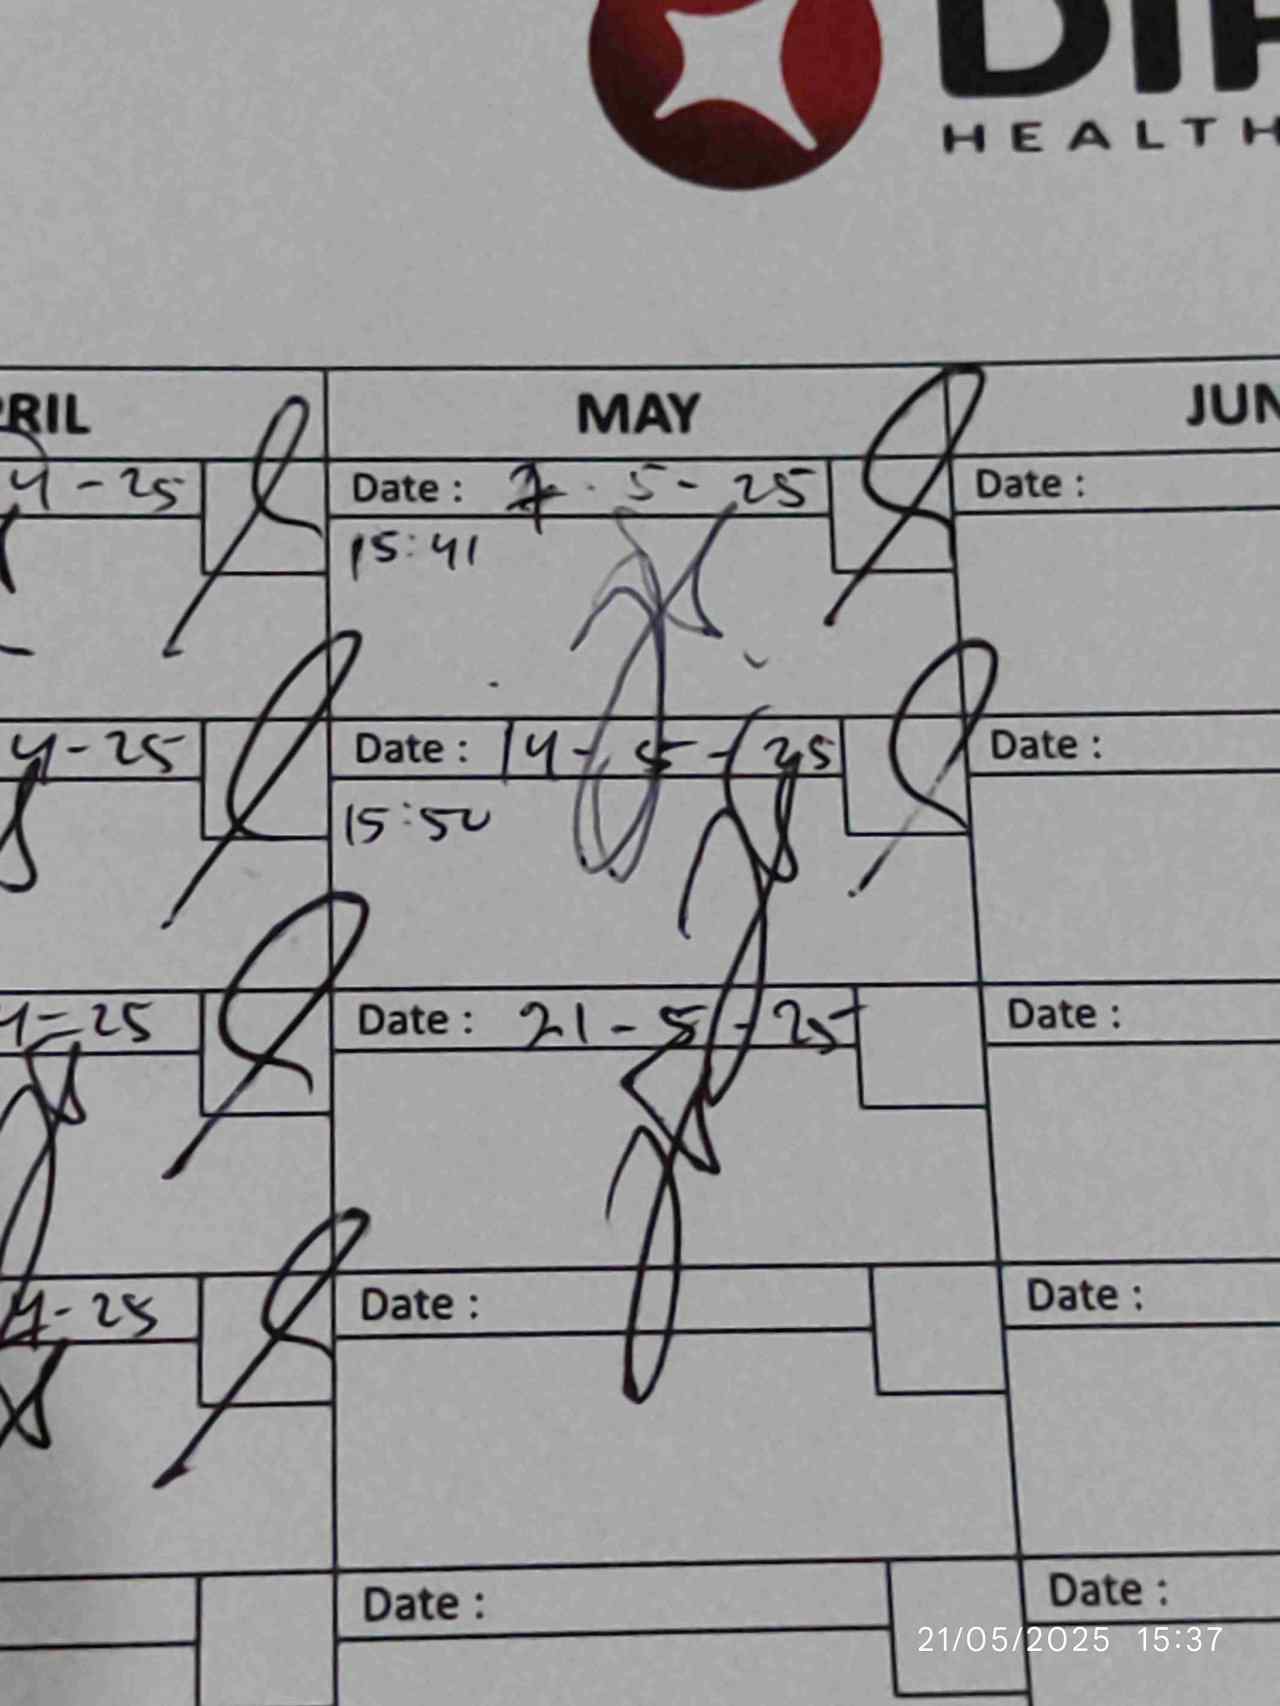 HEALTH
MAY
4-25
Date : 7-5-25
Date :
15:41
4-25
Date : 14-5-25
Date :
15:50
4-25
Date : 21-5-25
Date :
4-25
Date :
Date :
Date :
Date :
21/05/2025 15:37